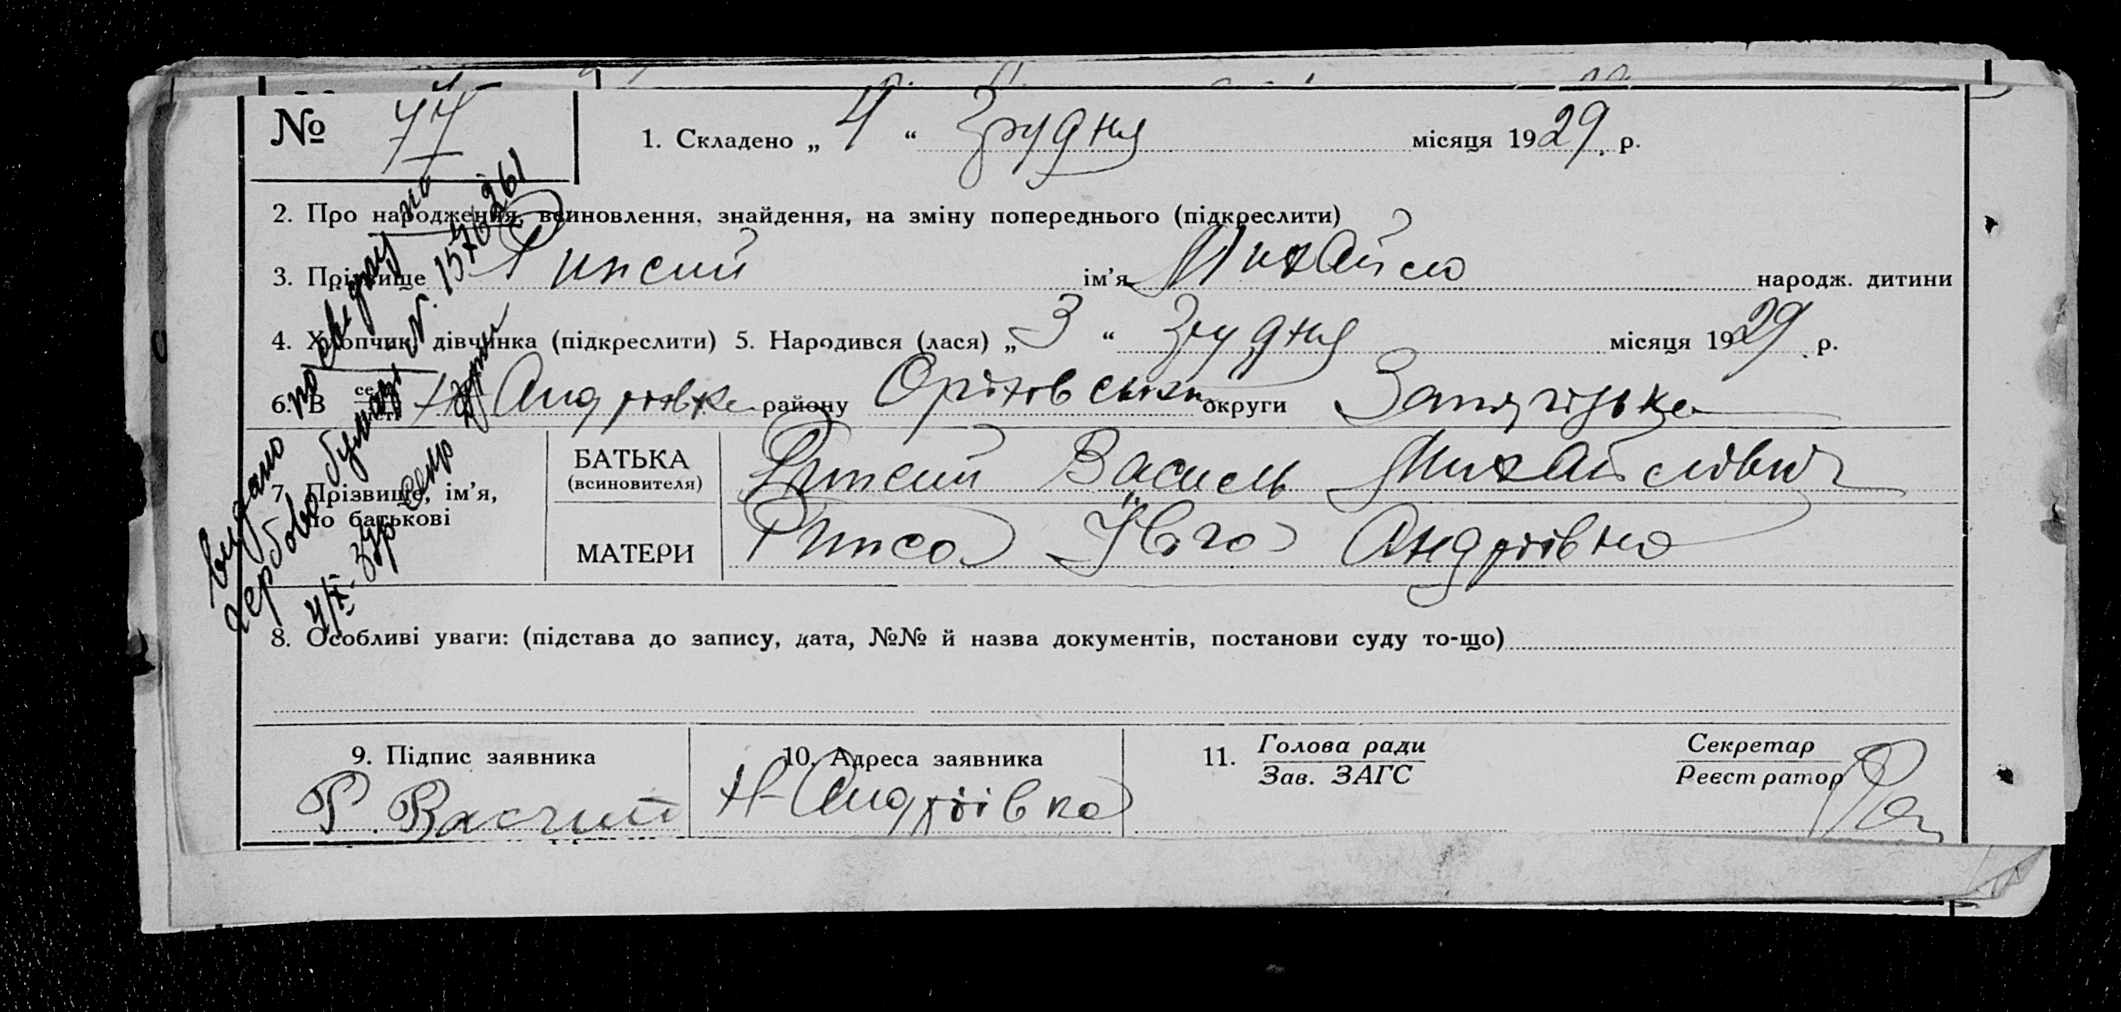 № 77 1. Складено „ 4 “ Грудня місяця 1929 р.
2. Про народження, всиновлення, знайдення, на зміну попереднього (підкреслити)
3. Прізвище ім'я Михайло народж. дитини
4. Хлопчик, дівчинка (підкреслити) 5. Народився (лася) „ 3 “ Грудня місяця 1929 р.
6. В Н Андріївка району Оріхівський округи Запорізька
7. Прізвище, ім'я, по батькові
БАТЬКА (всиновителя) Василь Михайлович
МАТЕРИ Андріївна
8. Особливі уваги: (підстава до запису, дата, №№ й назва документів, постанови суду то-що)
9. Підпис заявника
Р. Василий
10. Адреса заявника
Н-Андріївка
11. Голова ради
Зав. ЗАГС
Секретар
Реєстратор
видано по
гербово бумазі N. 1576261